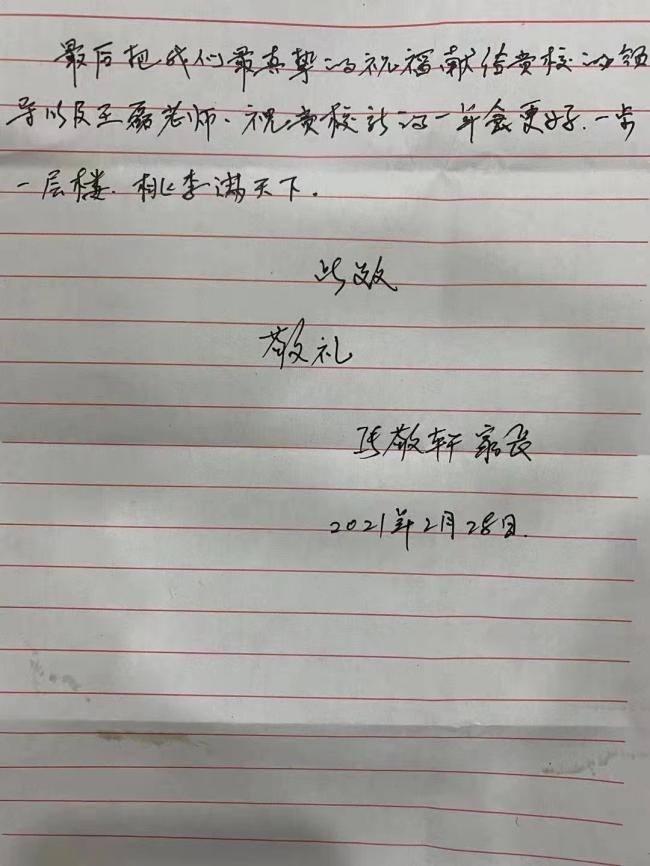 最后把我们最真挚的祝福献给贵校的领
导以及王磊老师、祝贵校新的一年会更好.一步
一层楼.桃李满天下.
此致
敬礼
张敬轩家长
2021年2月28日.